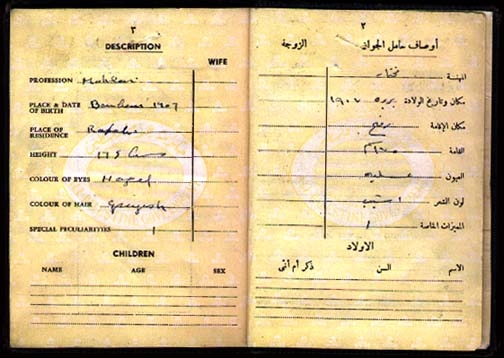 ٣
DESCRIPTION
WIFE
PROFESSION Mukhtar
PLACE & DATE OF BIRTH 1907
PLACE OF RESIDENCE Rafah
HEIGHT 175 Cms
COLOUR OF EYES Hazel
COLOUR OF HAIR Greyish
SPECIAL PECULIARITIES /
CHILDREN
NAME AGE SEX
٢
أوصاف حامل الجواز الزوجة
المهنة مختار
مكان وتاريخ الولادة ١٩٠٧
مكان الإقامة رفح
القامة
العيون عسلية
لون الشعر أشيب
المميزات الخاصة /
الاولاد
الاسم السن ذكر أم أنثى